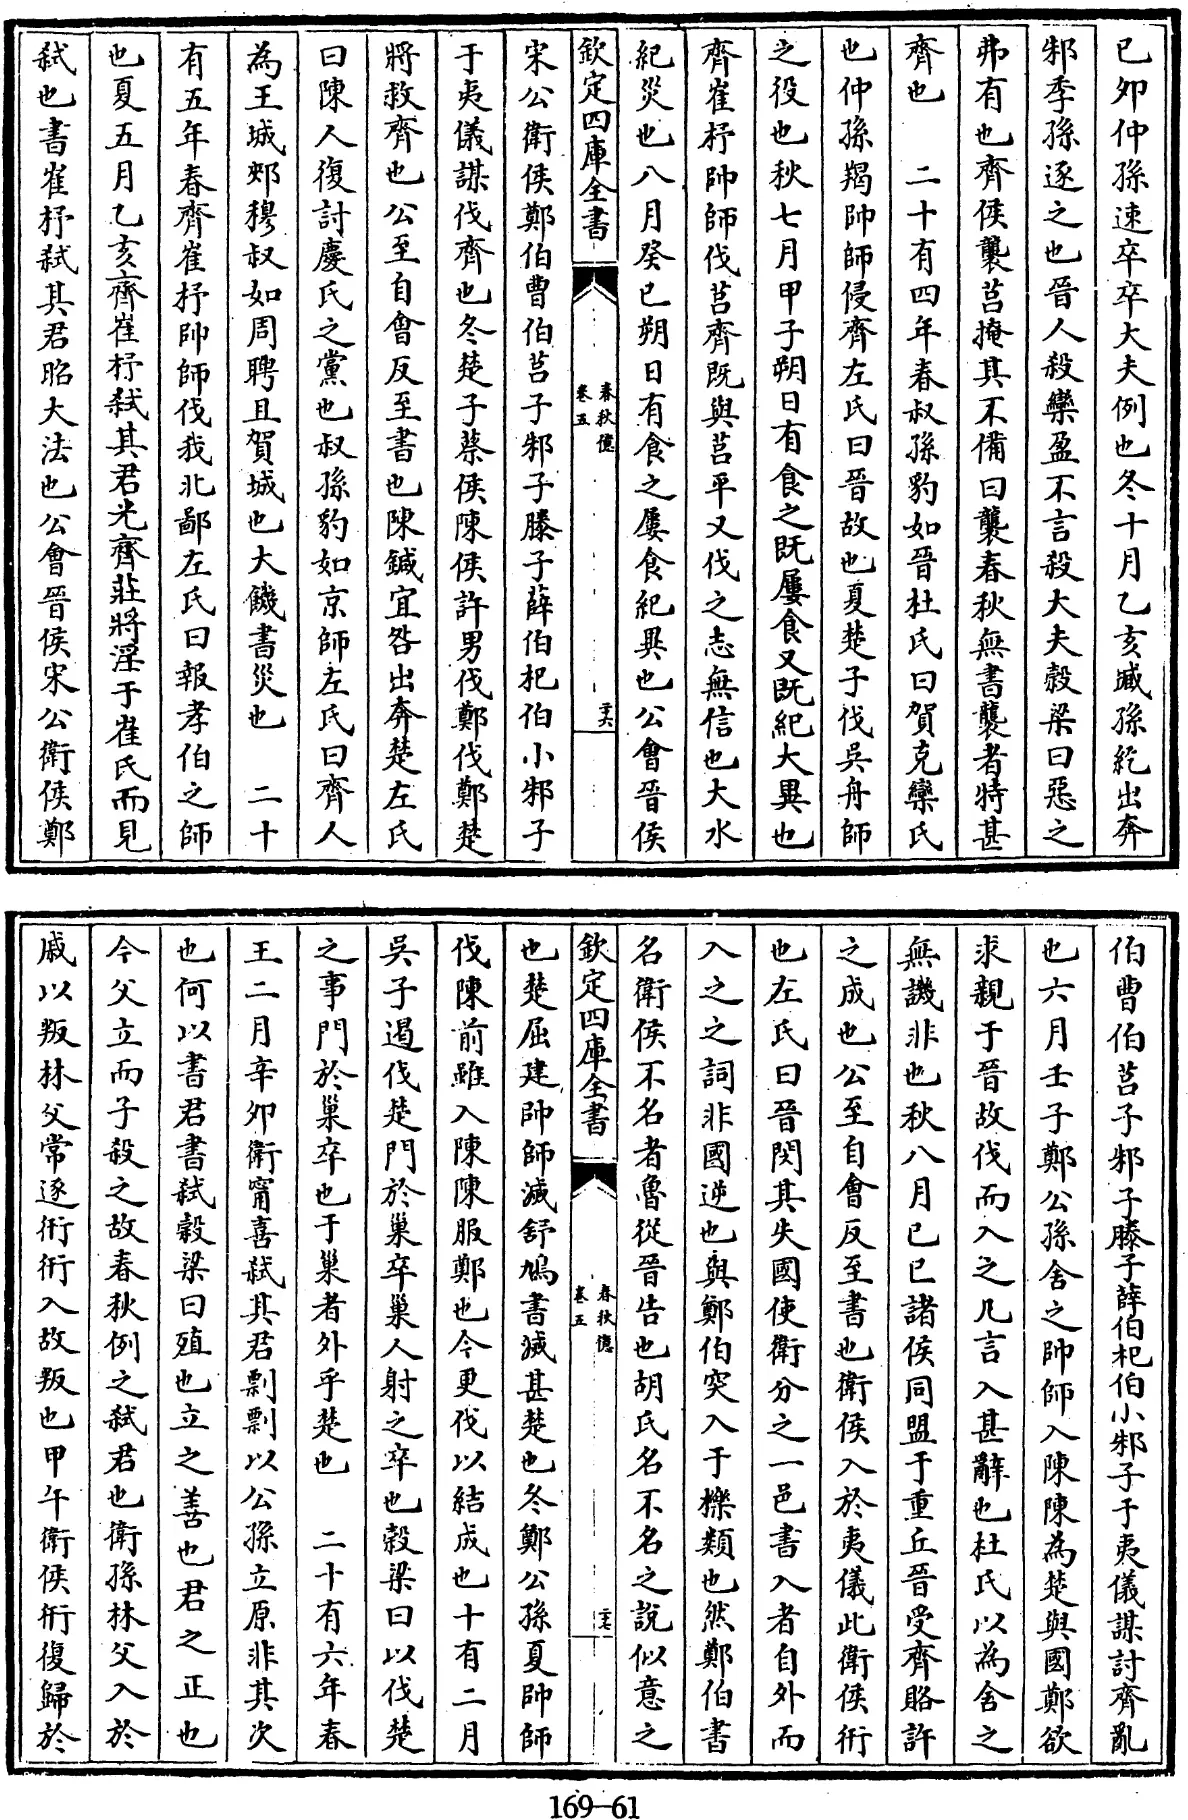 已夘仲孫速卒卒大夫例也冬十月乙亥臧孫紇出奔
邾季孫逐之也晉人殺欒盈不言殺大夫糓梁曰惡之
弗有也齊侯襲莒掩其不備曰襲春秋無書襲者特甚
齊也　二十有四年春叔孫豹如晉杜氏曰賀克欒氏
也仲孫羯帥師侵齊左氏曰晉故也夏楚子伐吳舟師
之役也秋七月甲子朔日有食之既屢食又既紀大異也
齊崔杼帥師伐莒齊既與莒平又伐之志無信也大水
紀災也八月癸巳朔日有食之屢食紀異也公會晉侯
欽定四庫全書
春秋億
卷五
二十六
宋公衛侯鄭伯曹伯莒子邾子滕子薛伯杞伯小邾子
于夷儀謀伐齊也冬楚子蔡侯陳侯許男伐鄭伐鄭楚
將救齊也公至自會反至書也陳鍼宜咎出奔楚左氏
曰陳人復討慶氏之黨也叔孫豹如京師左氏曰齊人
為王城郟穆叔如周聘且賀城也大饑書災也　二十
有五年春齊崔杼帥師伐我北鄙左氏曰報孝伯之師
也夏五月乙亥齊崔杼弑其君光齊莊將淫于崔氏而見
弑也書崔杼弑其君昭大法也公會晉侯宋公衛侯鄭
伯曹伯莒子邾子滕子薛伯杞伯小邾子于夷儀謀討齊亂
也六月壬子鄭公孫舍之帥師入陳陳為楚與國鄭欲
求親于晉故伐而入之凡言入甚辭也杜氏以為舍之
無譏非也秋八月已巳諸侯同盟于重丘晉受齊賂許
之成也公至自會反至書也衛侯入於夷儀此衛侯衎
也左氏曰晉閔其失國使衛分之一邑書入者自外而
入之之詞非國逆也與鄭伯突入于櫟類也然鄭伯書
名衛侯不名者魯從晉告也胡氏名不名之說似意之
欽定四庫全書
春秋億
卷五
二十七
也楚屈建帥師滅舒鳩書滅甚楚也冬鄭公孫夏帥師
伐陳前雖入陳陳服鄭也今更伐以結成也十有二月
吳子遏伐楚門於巢卒巢人射之卒也糓梁曰以伐楚
之事門於巢卒也于巢者外乎楚也　二十有六年春
王二月辛夘衛甯喜弑其君剽剽以公孫立原非其次
也何以書君書弑糓梁曰殖也立之善也君之正也
今父立而子殺之故春秋例之弑君也衛孫林父入於
戚以叛林父常逐衎衎入故叛也甲午衛侯衎復歸於
169-61